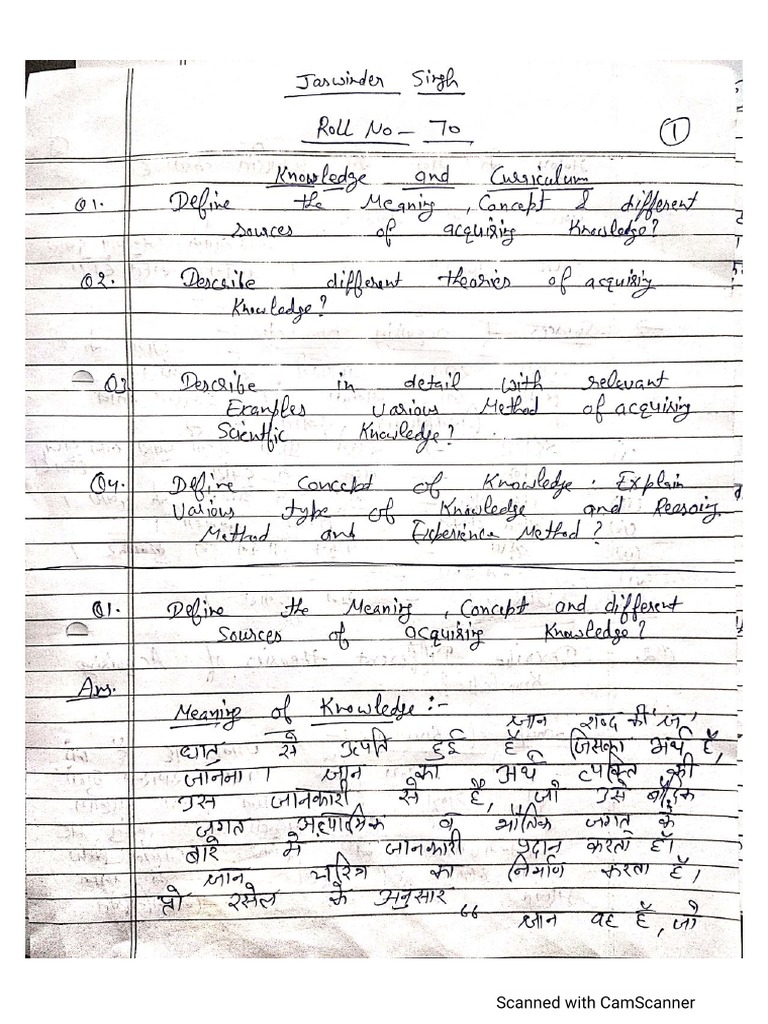 Jaswinder Singh
Roll No - 70
1
Knowledge and Curriculum
Q1. Define the Meaning, Concept & different
sources of acquiring Knowledge?
Q2. Describe different theories of acquiring
Knowledge?
Q3. Describe in detail with relevant
Examples various Method of acquiring
Scientfic Knowledge?
Q4. Define Concept of Knowledge. Explain
various type of Knowledge and Reasoing
Method and Experience Method?
Q1. Define the Meaning, Concept and different
Sources of acquiring Knowledge?
Ans.
Meaning of Knowledge :-
ज्ञान शब्द की 'ज्ञ'
धातु से उत्पति हुई है जिसका अर्थ है,
जानना। ज्ञान का अर्थ व्यक्ति की
उस जानकारी से है, जो उसे बौद्धिक
जगत व भौतिक जगत के
बारे में जानकारी प्रदान करता है।
ज्ञान चरित्र का निर्माण करता है,
प्रो रसेल के अनुसार
“ ज्ञान वह है, जो
Scanned with CamScanner